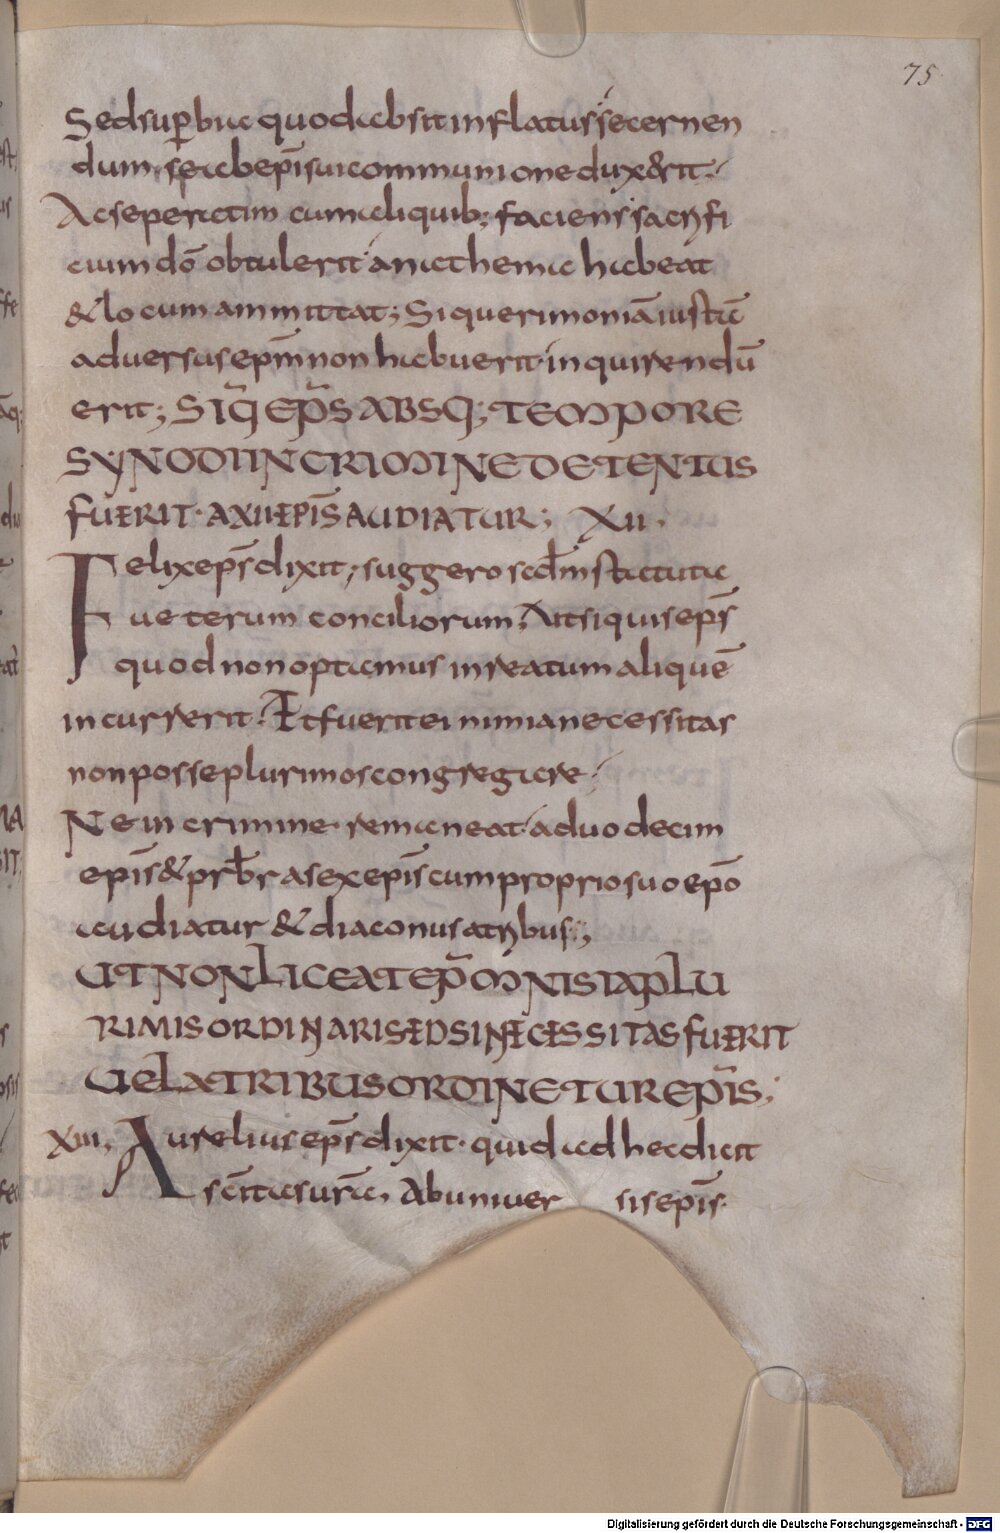 75
Sedsup̲buaquodabsitinflatus secernen
dum, seabepīsuicommunioneduxerit.
Acseperatim cumaliquib; faciens sacrifi
cium dō obtulerit anathema habeat
& locum ammittat; Siquerimoniā iustā
aduersus epm̄ non habuerit inquirendū
erit; SIQ̄ EP̄S ABSQ; TEMPORE
SYNODI IN CRIMINE DETENTUS
FUERIT· A XII EPĪS AUDIATUR; XII·
Felix ep̄s dixit; suggero scdm̄ statuta
ueterum conciliorum, Aitsiquis ep̄s
quod non optamus inreatum aliquē
incurrerit· Et fuerit ei nimia necessitas
non posse plurimos congregare·
Ne in crimine remaneat aduodecim
epīs & prb̄r asex epīs cum proprio suo epō
audiatur & diaconus atribus;
UT NON LICEAT EP̄M NISI A PLU
RIMIS ORDINARI SED SI NECESSITAS FUERIT
UEL A TRIBUS ORDINETUR EP̄IS;
XIII, Aurelius ep̄s dixit· quid ad hec dicit
scītas ur̄a, Ab uniuer sis epīs·
Digitalisierung gefördert durch die Deutsche Forschungsgemeinschaft - DFG